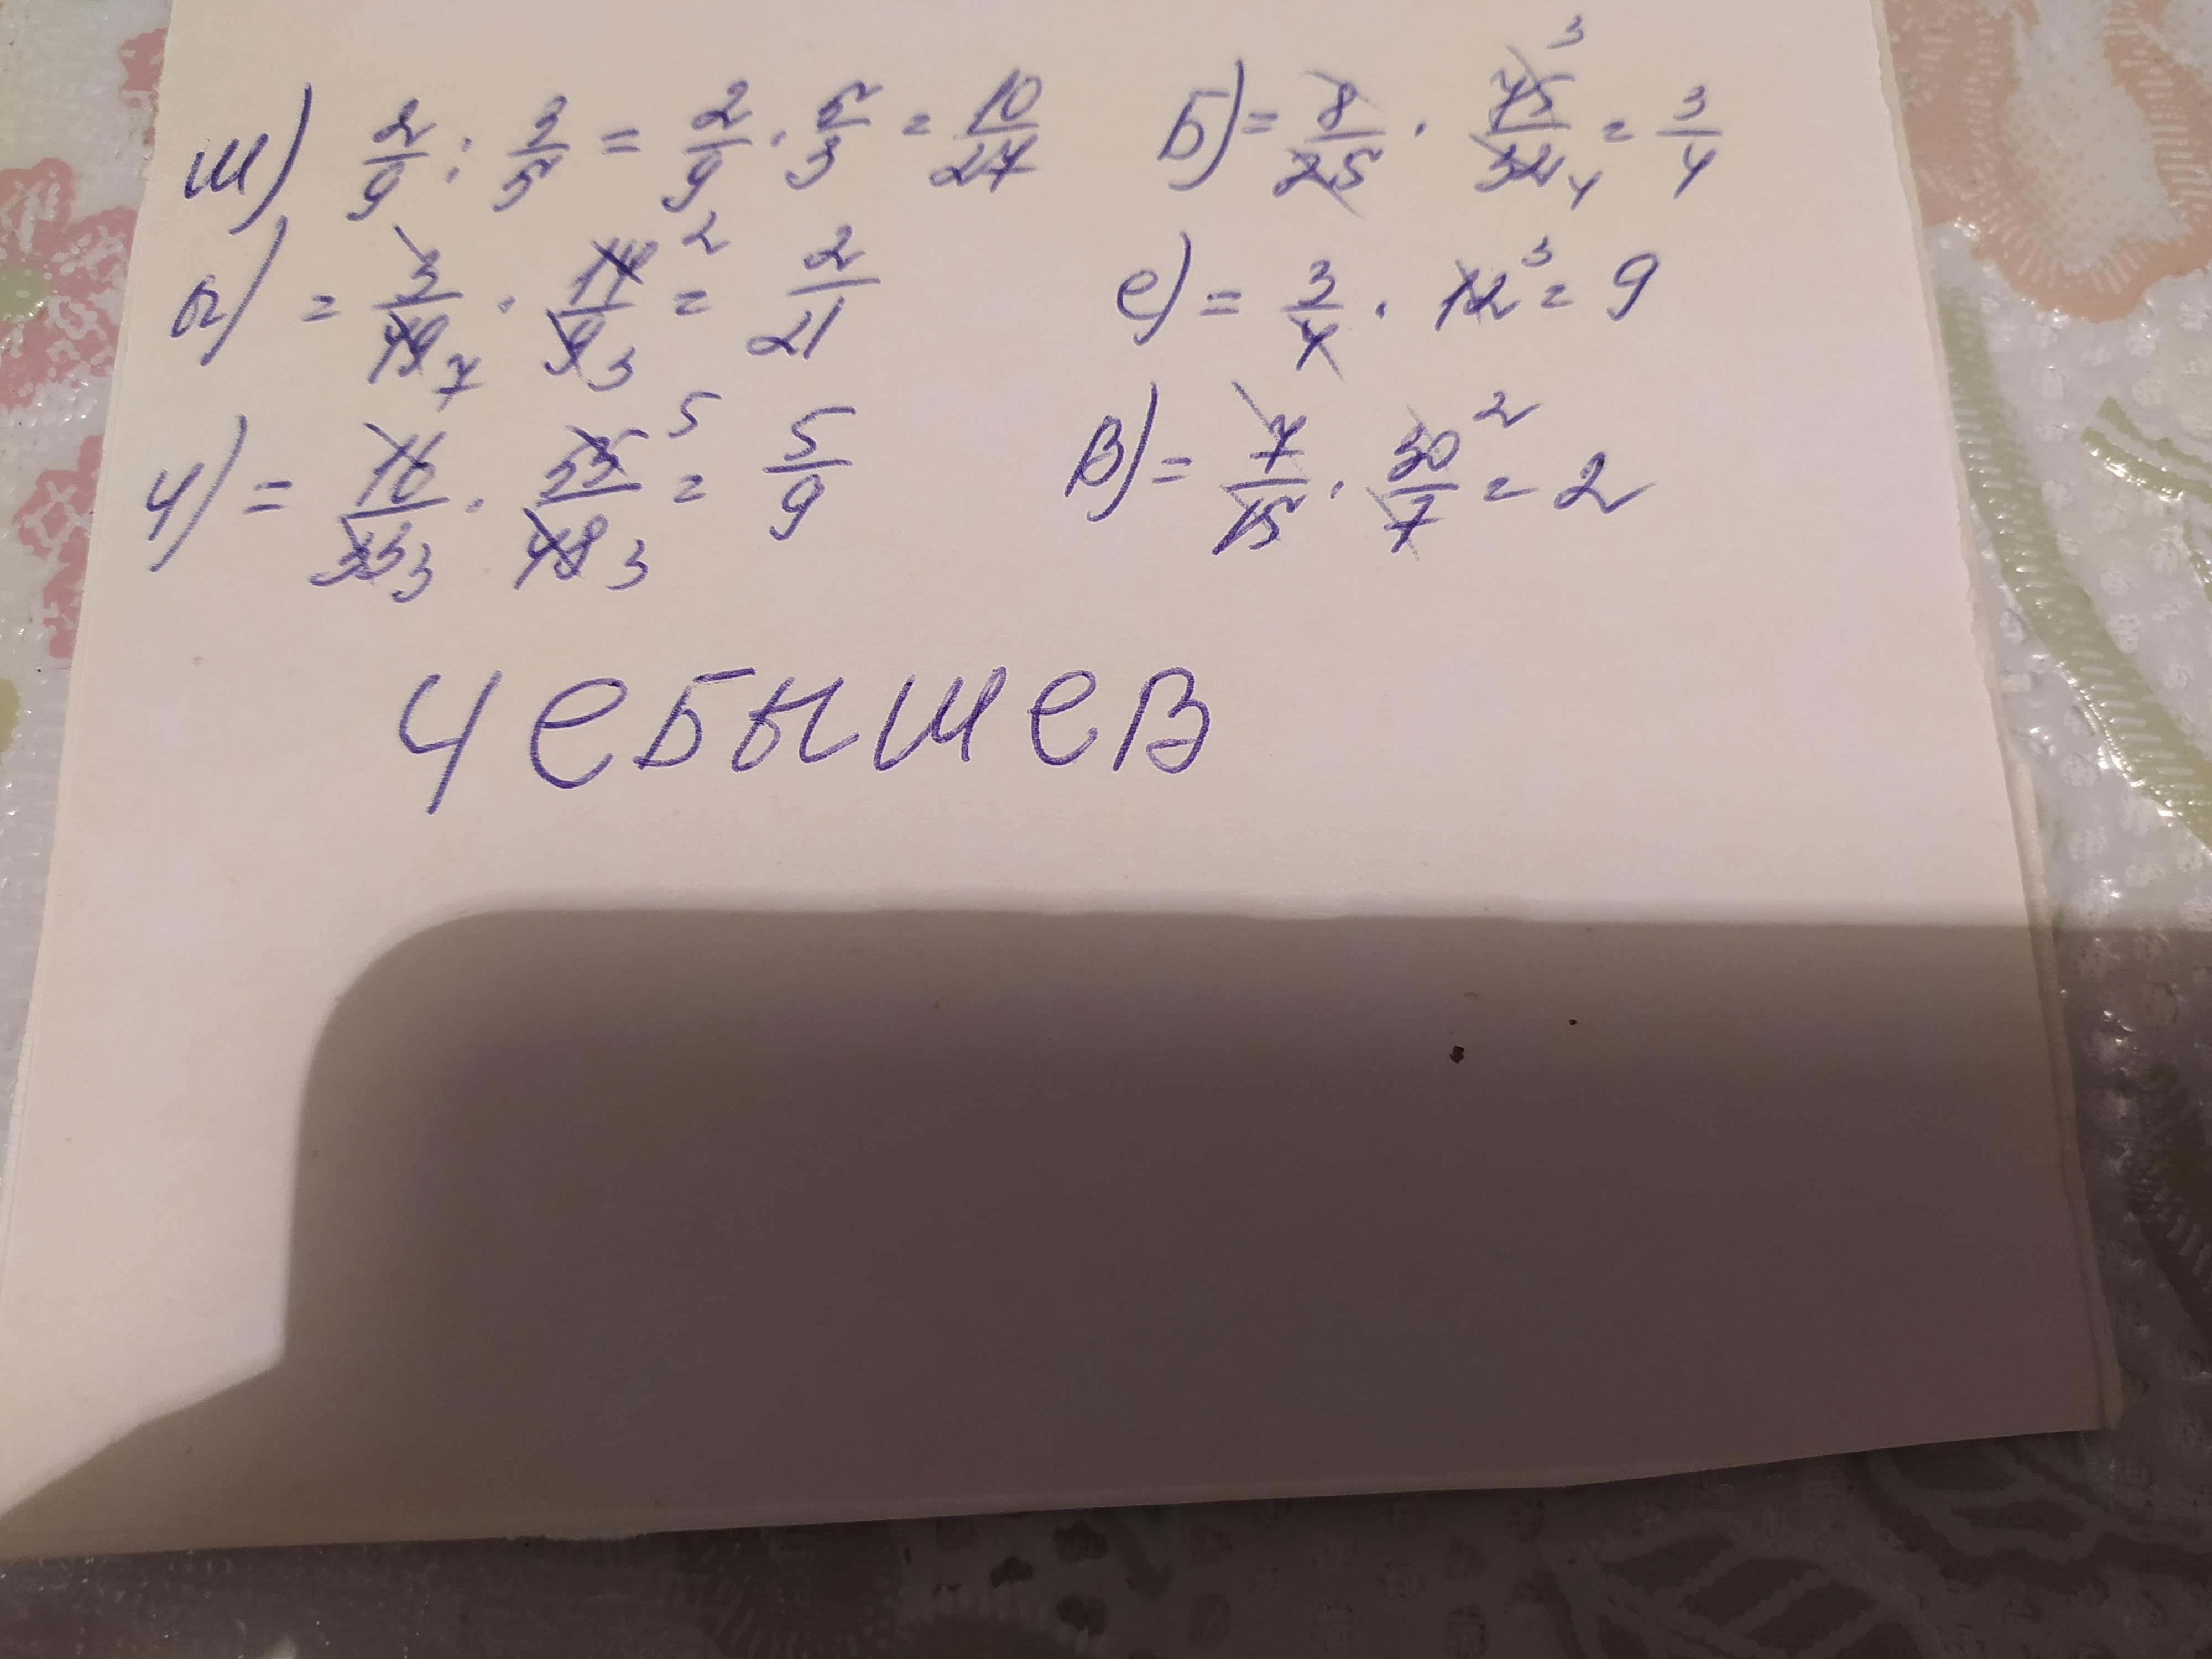 ш) 2/9 : 3/5 = 2/9 · 5/3 = 10/27 Б) = 8/25 · 75/32 3 4 = 3/4
ы) = 3/49 7 · 14/9 2 3 = 2/21 е) = 3/4 · 12 3 = 9
ч) = 16/33 3 · 55/48 5 3 = 5/9 В) = 7/15 · 30/7 2 = 2
ЧеБышеВ